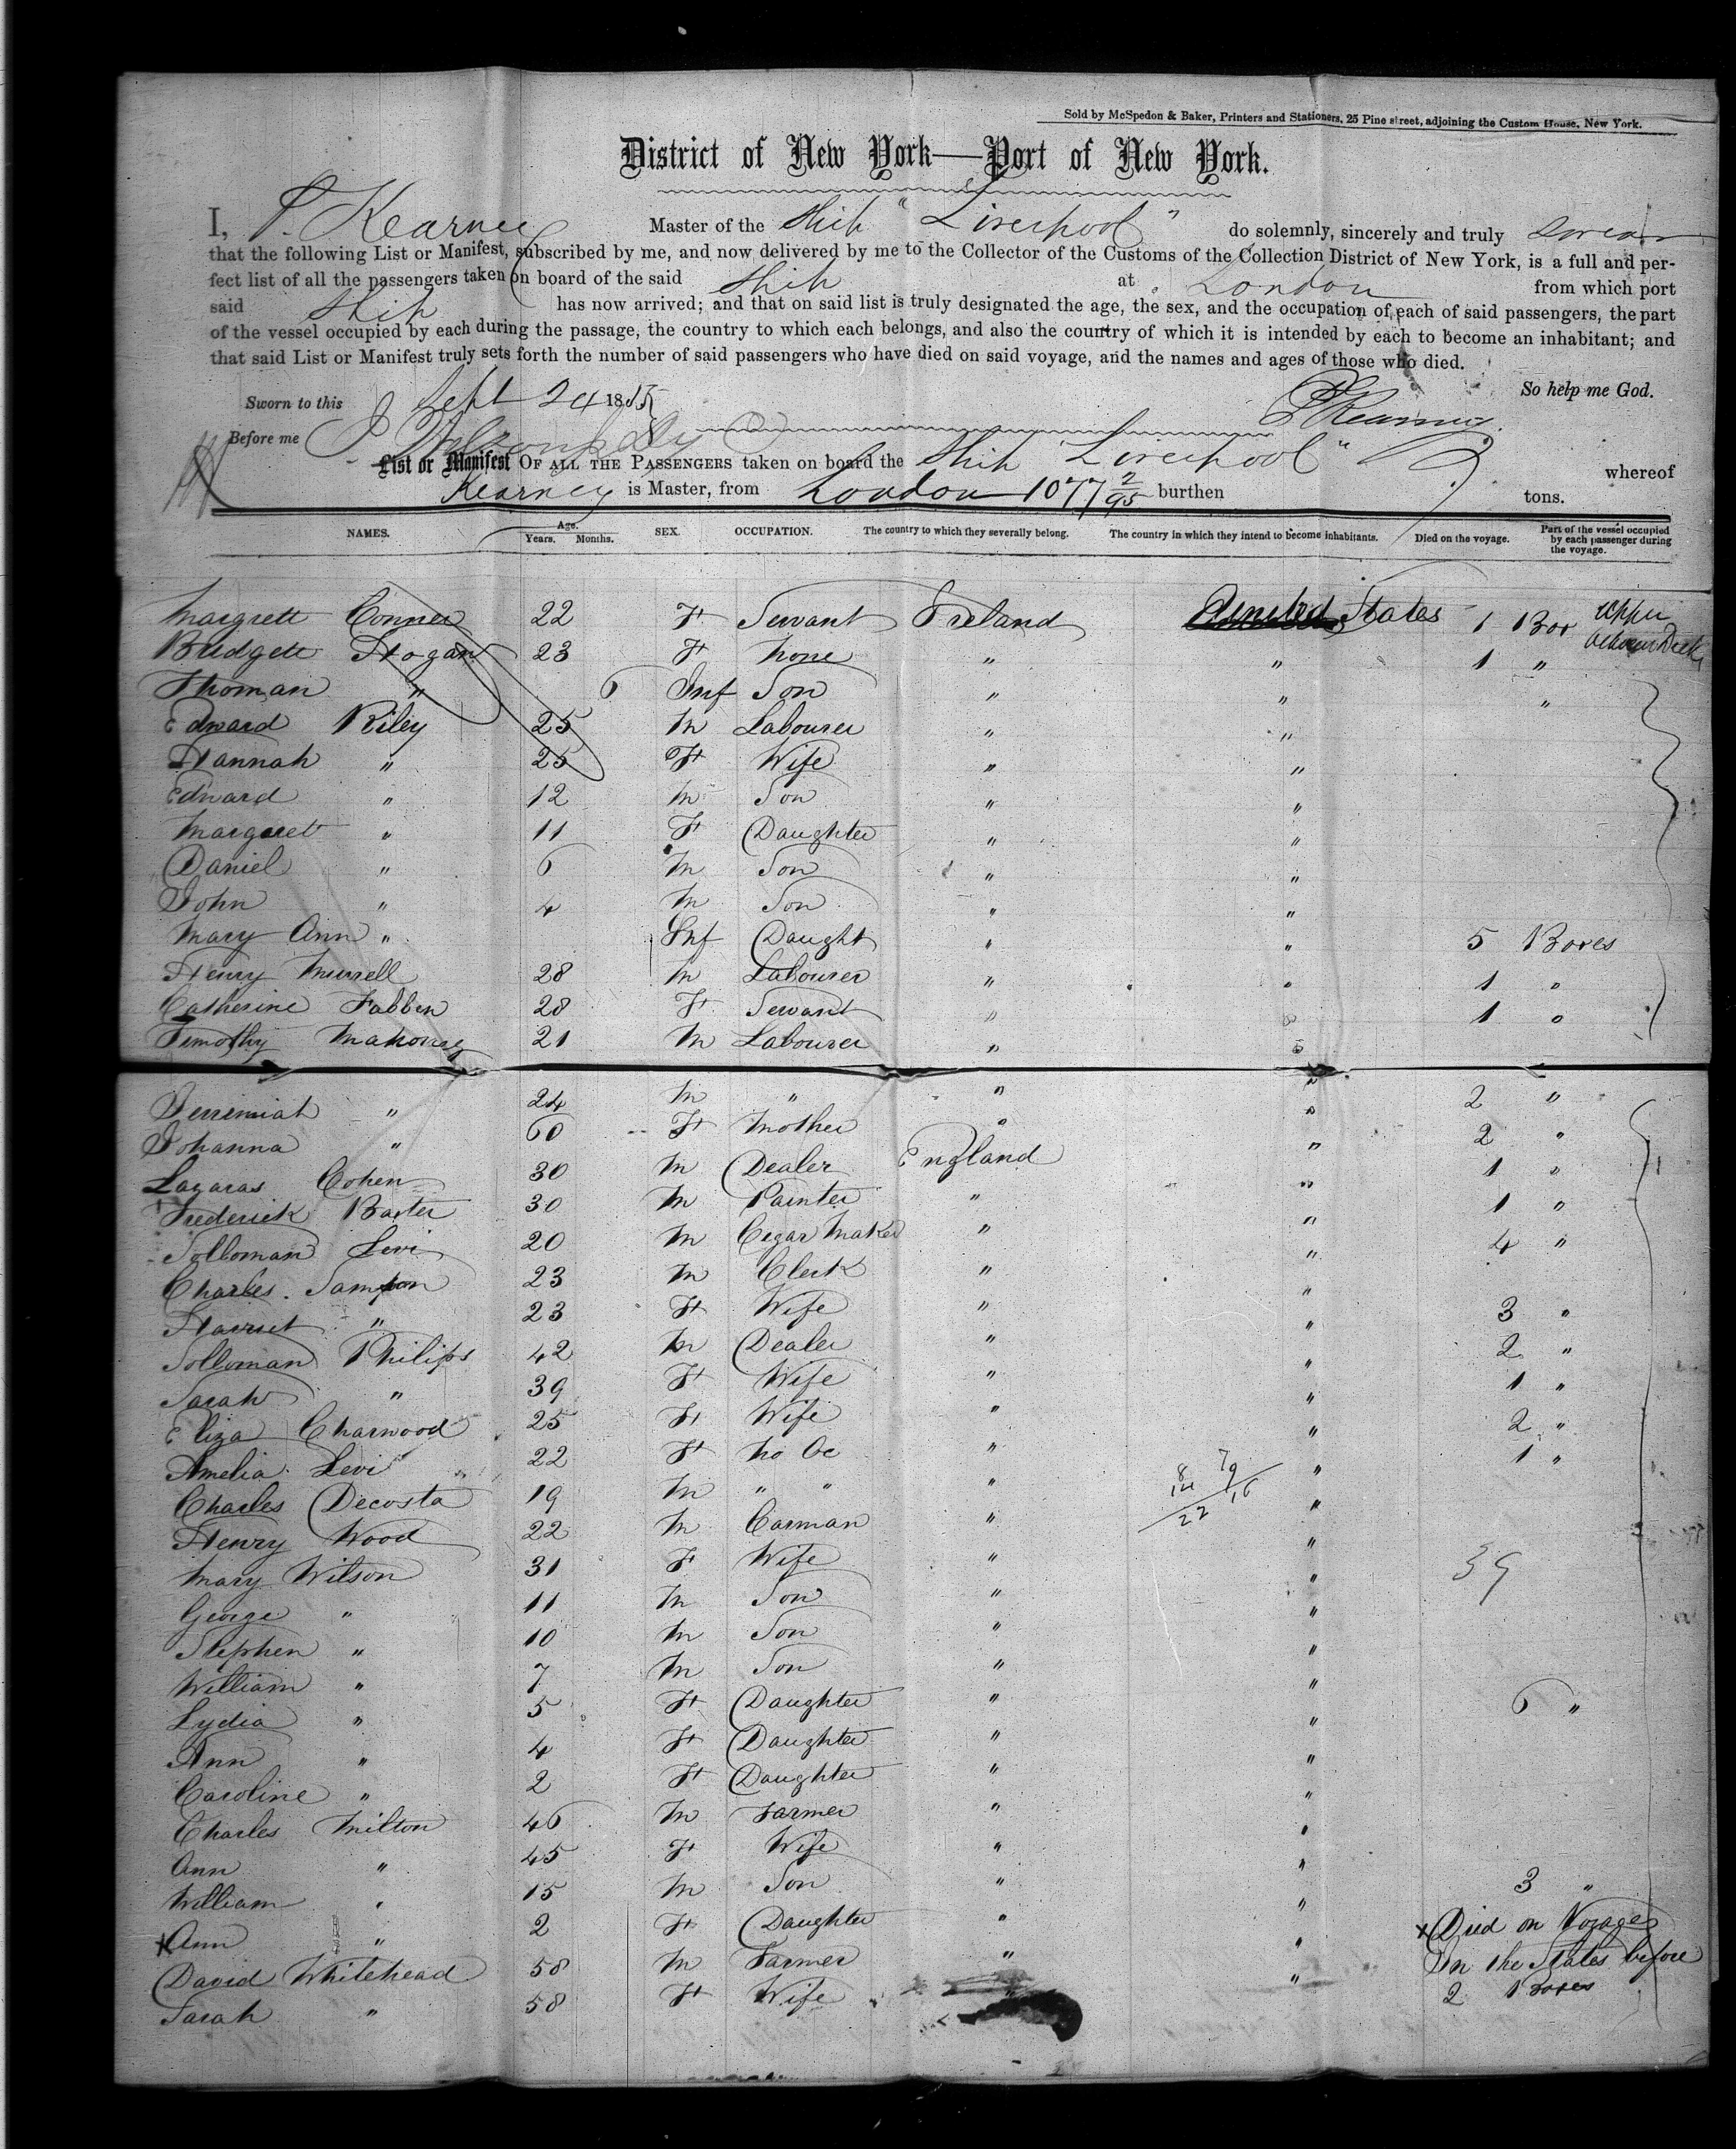 Sold by McSpedon & Baker, Printers and Stationers, 25 Pine street, adjoining the Custom House, New York.
District of New York—Port of New York.
I, P. Kearney Master of the Ship "Liverpool" do solemnly, sincerely and truly swear
that the following List or Manifest, subscribed by me, and now delivered by me to the Collector of the Customs of the Collection District of New York, is a full and per-
fect list of all the passengers taken on board of the said Ship at London from which port
said Ship has now arrived; and that on said list is truly designated the age, the sex, and the occupation of each of said passengers, the part
of the vessel occupied by each during the passage, the country to which each belongs, and also the country of which it is intended by each to become an inhabitant; and
that said List or Manifest truly sets forth the number of said passengers who have died on said voyage, and the names and ages of those who died.
So help me God.
Sworn to this Sept 24 1855
P Kearney
Before me
List or Manifest OF ALL THE PASSENGERS taken on board the Ship "Liverpool" whereof
Kearney is Master, from London 1077 2/95 burthen tons.
NAMES. Age. Years. Months. SEX. OCCUPATION. The country to which they severally belong. The country in which they intend to become inhabitants. Died on the voyage. Part of the vessel occupied by each passenger during the voyage.
Margrett Conner 22 F Servant Ireland United States 1 Box Upper
Bridgett Hogan 23 F None " " 1 " Deck
Thomas " 6 Inf Son " " "
Edward Riley 25 M Labourer " "
Hannah " 25 F Wife " "
Edward " 12 M Son " "
Margaret " 11 F Daughter " "
Daniel " 6 M Son " "
John " 4 M Son " "
Mary Ann " Inf Daught " " 5 Boxes
Henry Murrell 28 M Labourer " " 1 "
Catherine Fabben 28 F Servant " " 1 "
Timothy Mahoney 21 M Labourer " "
Jerremiah " 24 M " " " 2 "
Johanna " 60 F Mother " " 2 "
Lazaras Cohen 30 M Dealer England " 1 "
Frederick Baxter 30 M Painter " " 1 "
Solloman Levi 20 M Cegar Maker " " 4 "
Charles Sampson 23 M Clerk " "
Harriet " 23 F Wife " " 3 "
Solloman Philips 42 M Dealer " " 2 "
Sarah " 39 F Wife " " 1 "
Eliza Charwood 25 F Wife " " 2 "
Amelia Levi 22 F No Oc " " 1 "
Charles Decosta 19 M " " " "
Henry Wood 22 M Carman " "
Mary Wilson 31 F Wife " " 39
George " 11 M Son " "
Stephen " 10 M Son " "
William " 7 M Son " "
Lydia " 5 F Daughter " " 6 "
Ann " 4 F Daughter " "
Caroline " 2 F Daughter " "
Charles Milton 46 M Farmer " "
Ann " 45 F Wife " "
William " 15 M Son " " 3 "
x Ann " 2 F Daughter " " x Died on Voyage
David Whitehead 58 M Farmer " " In the States before
Sarah " 58 F Wife " " 2 Boxes